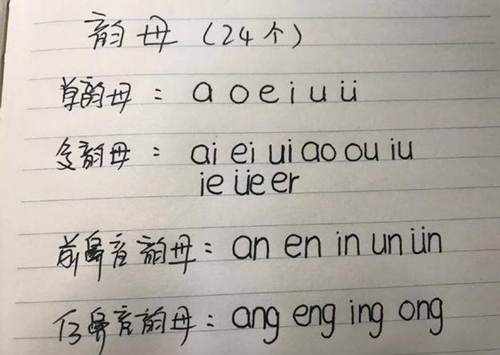 韵母（24个）
单韵母：a o e i u ü
复韵母：ai ei ui ao ou iu
ie üe er
前鼻音韵母：an en in un ün
后鼻音韵母：ang eng ing ong